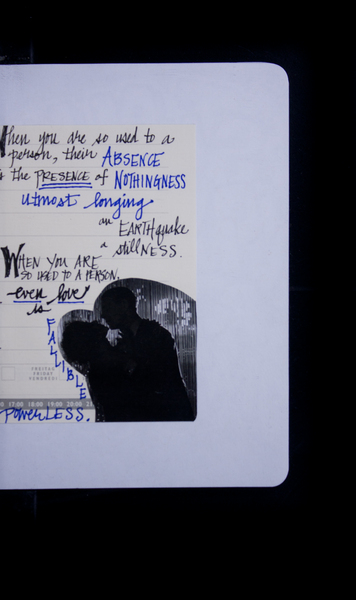 When you are so used to a
person, their ABSENCE
is the PRESENCE of NOTHINGNESS
utmost longing
an EARTHquake
a stillNESS.
WHEN YOU ARE
SO USED TO A PERSON,
even love
is
FALLIBLE
FREITAG
FRIDAY
VENDREDI
17:00 18:00 19:00 20:00
POWERLESS.